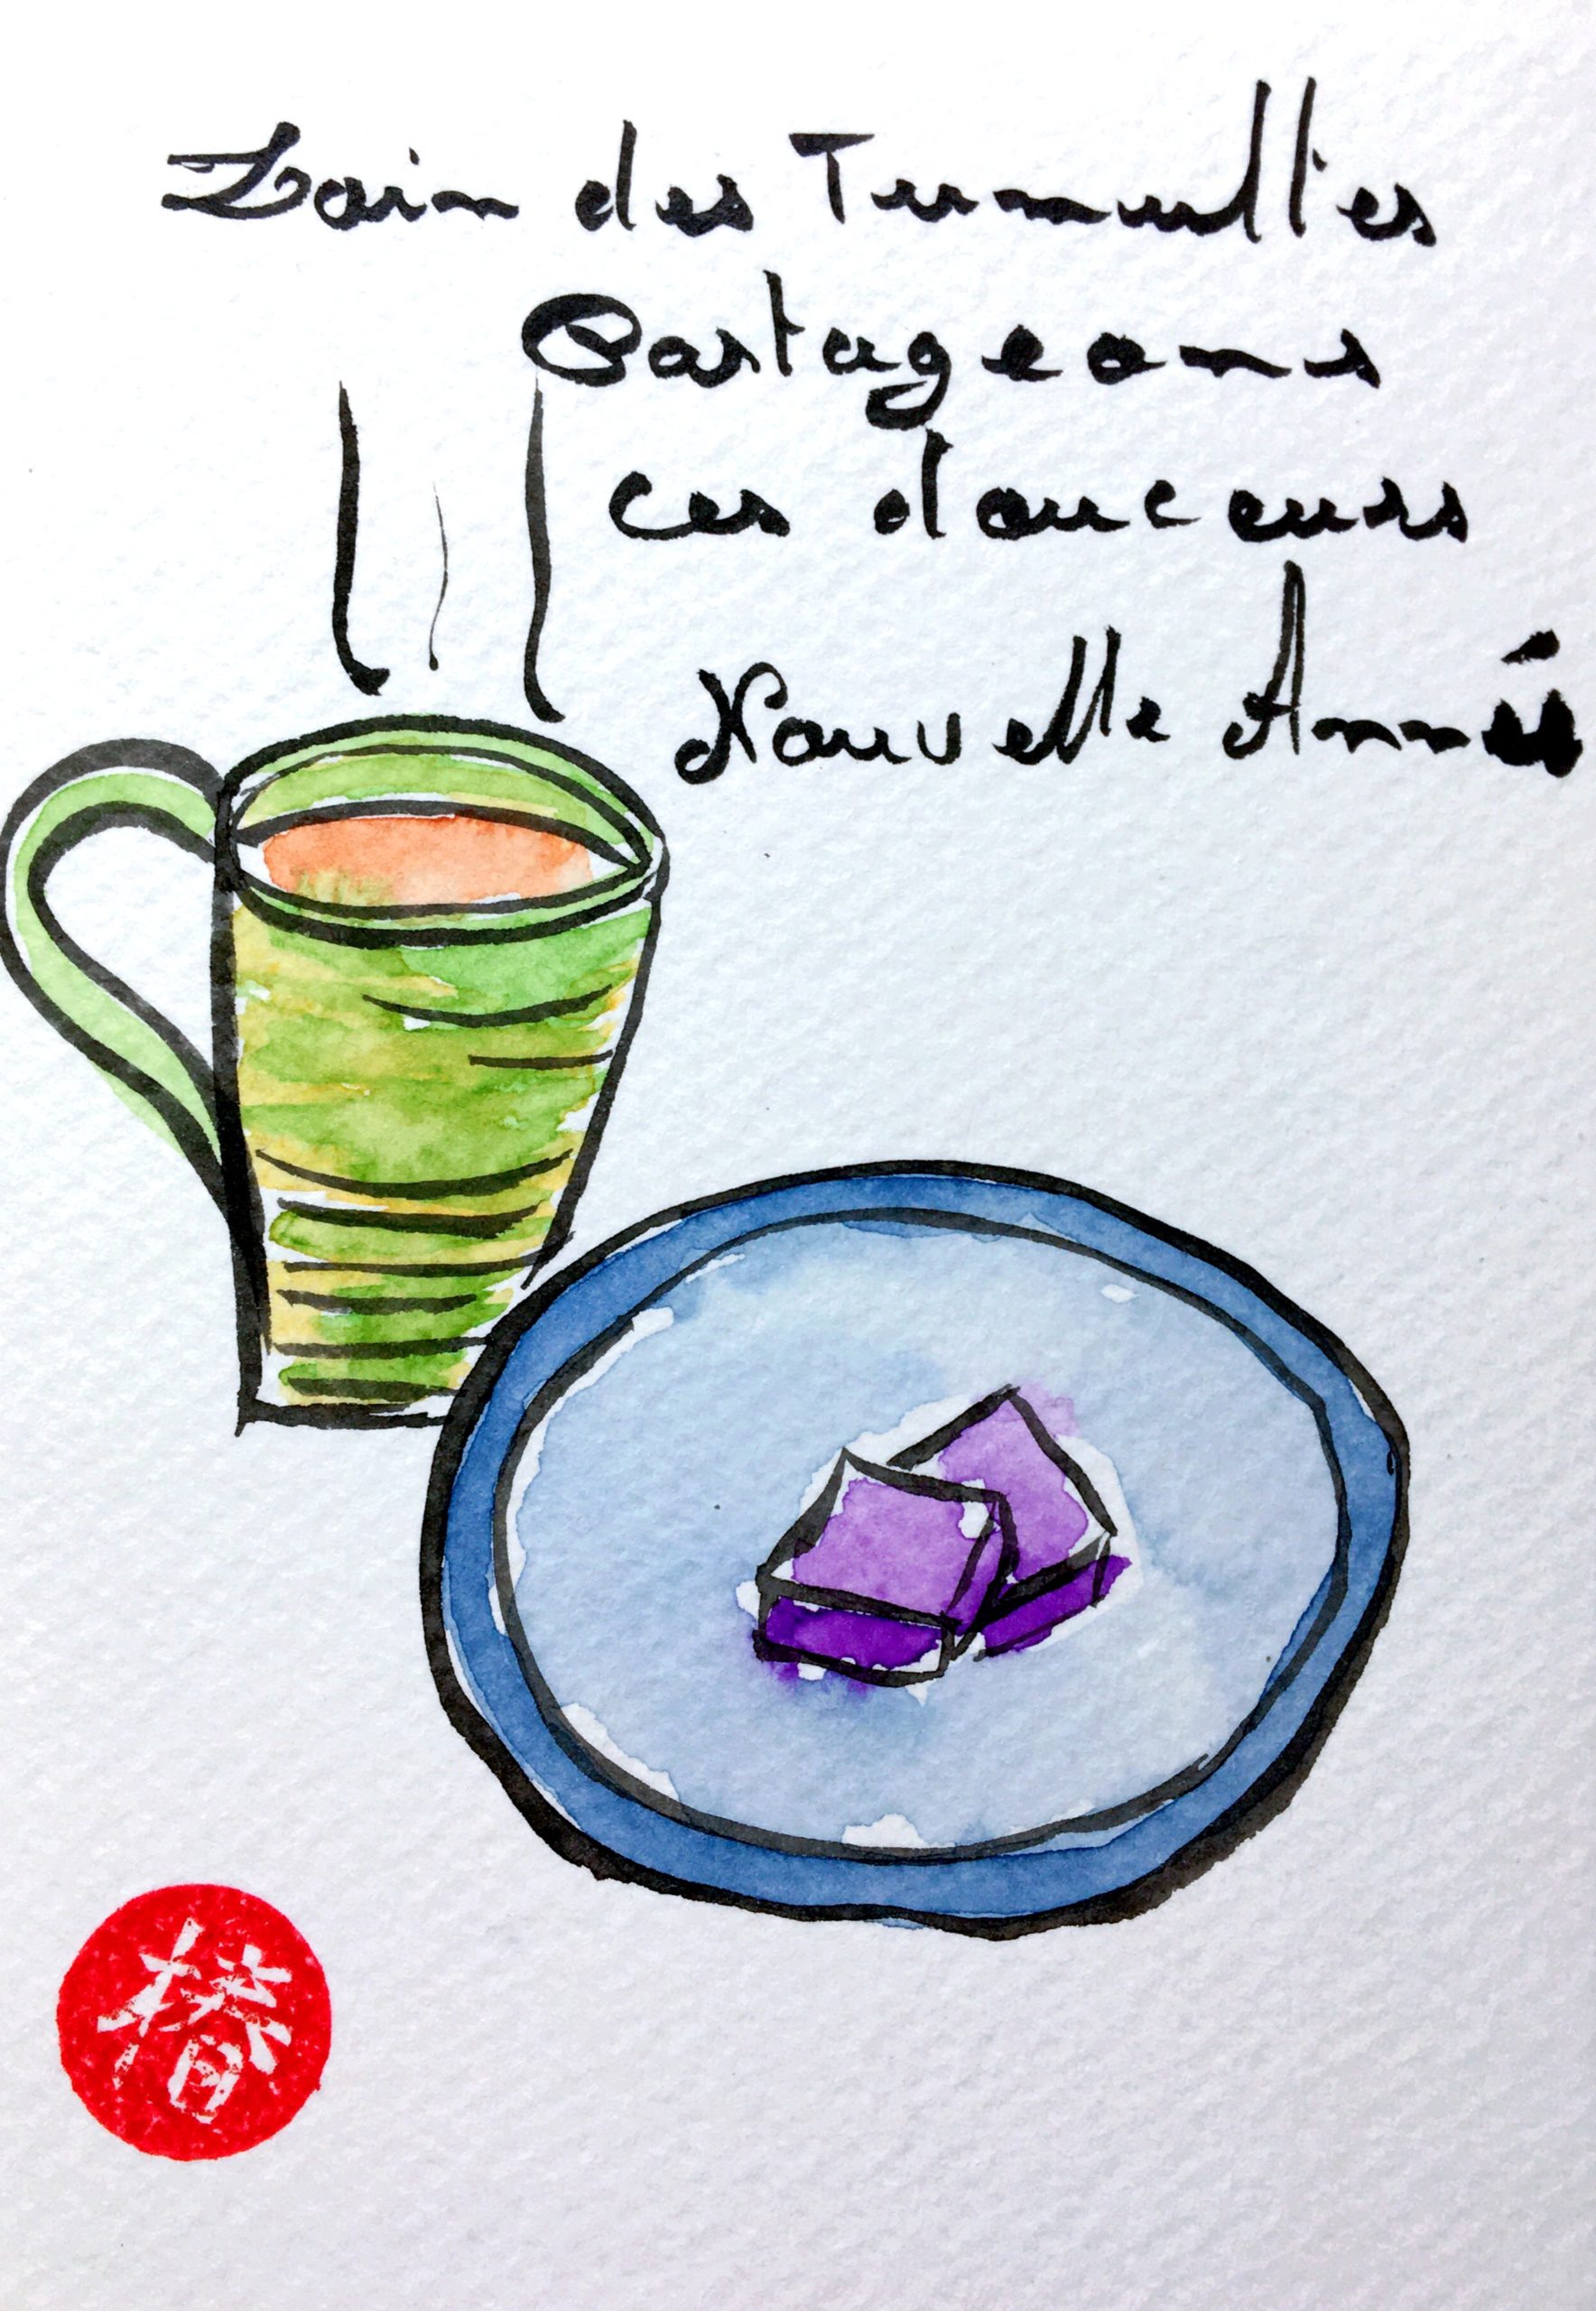 Loin des Tumultes
Partageons
ces douceurs
Nouvelle Année
椿